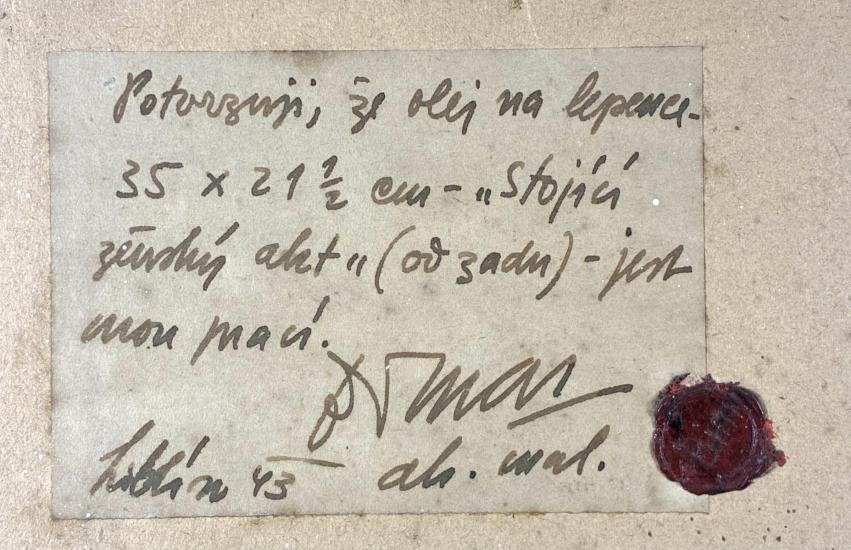 Potvrzuji, že olej na lepence-
35 x 21 ½ cm - „Stojící
ženský akt" (od zadu) - jest
mou prací.
ak. mal.
Liblín 43